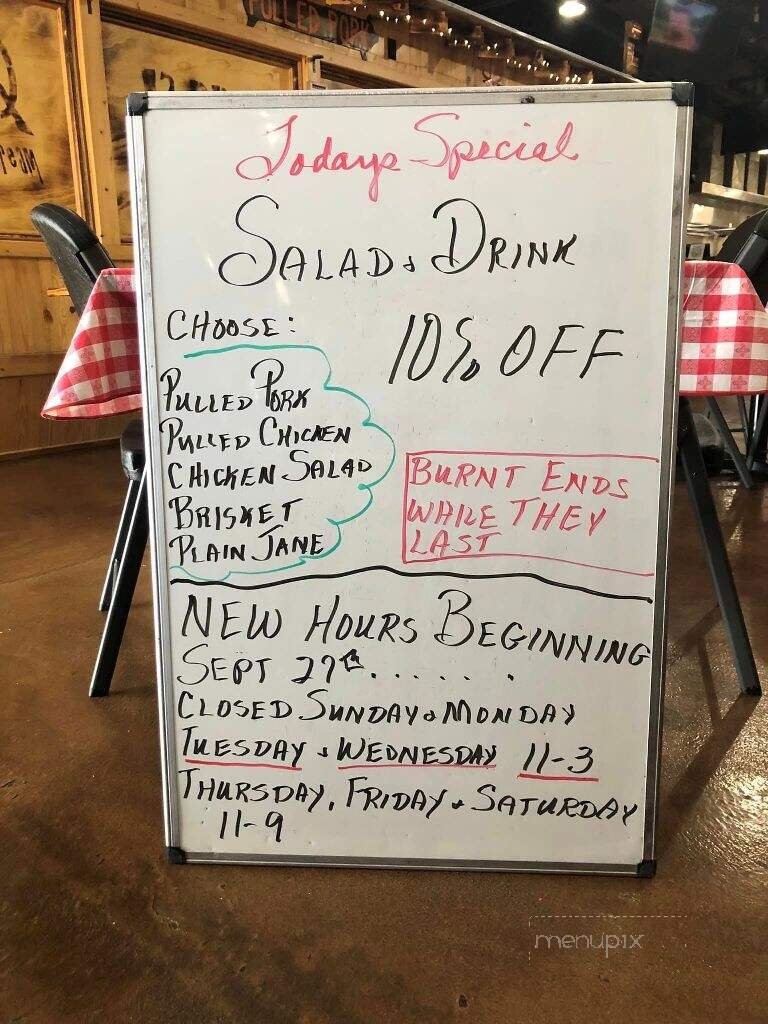 PULLED PORK
Todays Special
SALAD & DRINK
CHOOSE:
10% OFF
PULLED PORK
PULLED CHICKEN
CHICKEN SALAD
BRISKET
PLAIN JANE
BURNT ENDS
WHILE THEY
LAST
NEW HOURS BEGINNING
SEPT 27th......
CLOSED SUNDAY & MONDAY
TUESDAY & WEDNESDAY 11-3
THURSDAY, FRIDAY & SATURDAY
11-9
menupix